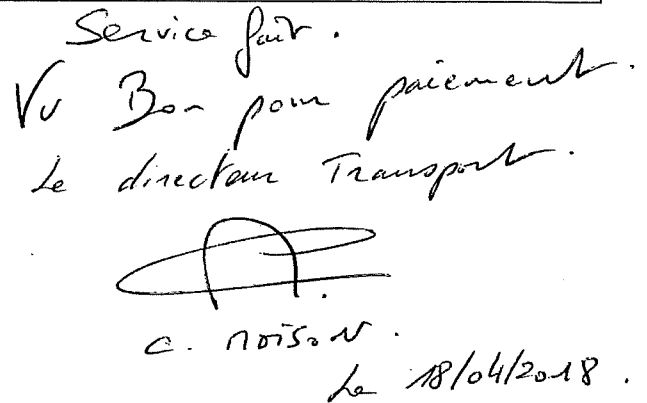 Service fait.
Vu Bon pour paiement.
Le directeur Transport.
C. MOISON.
Le 18/04/2018.